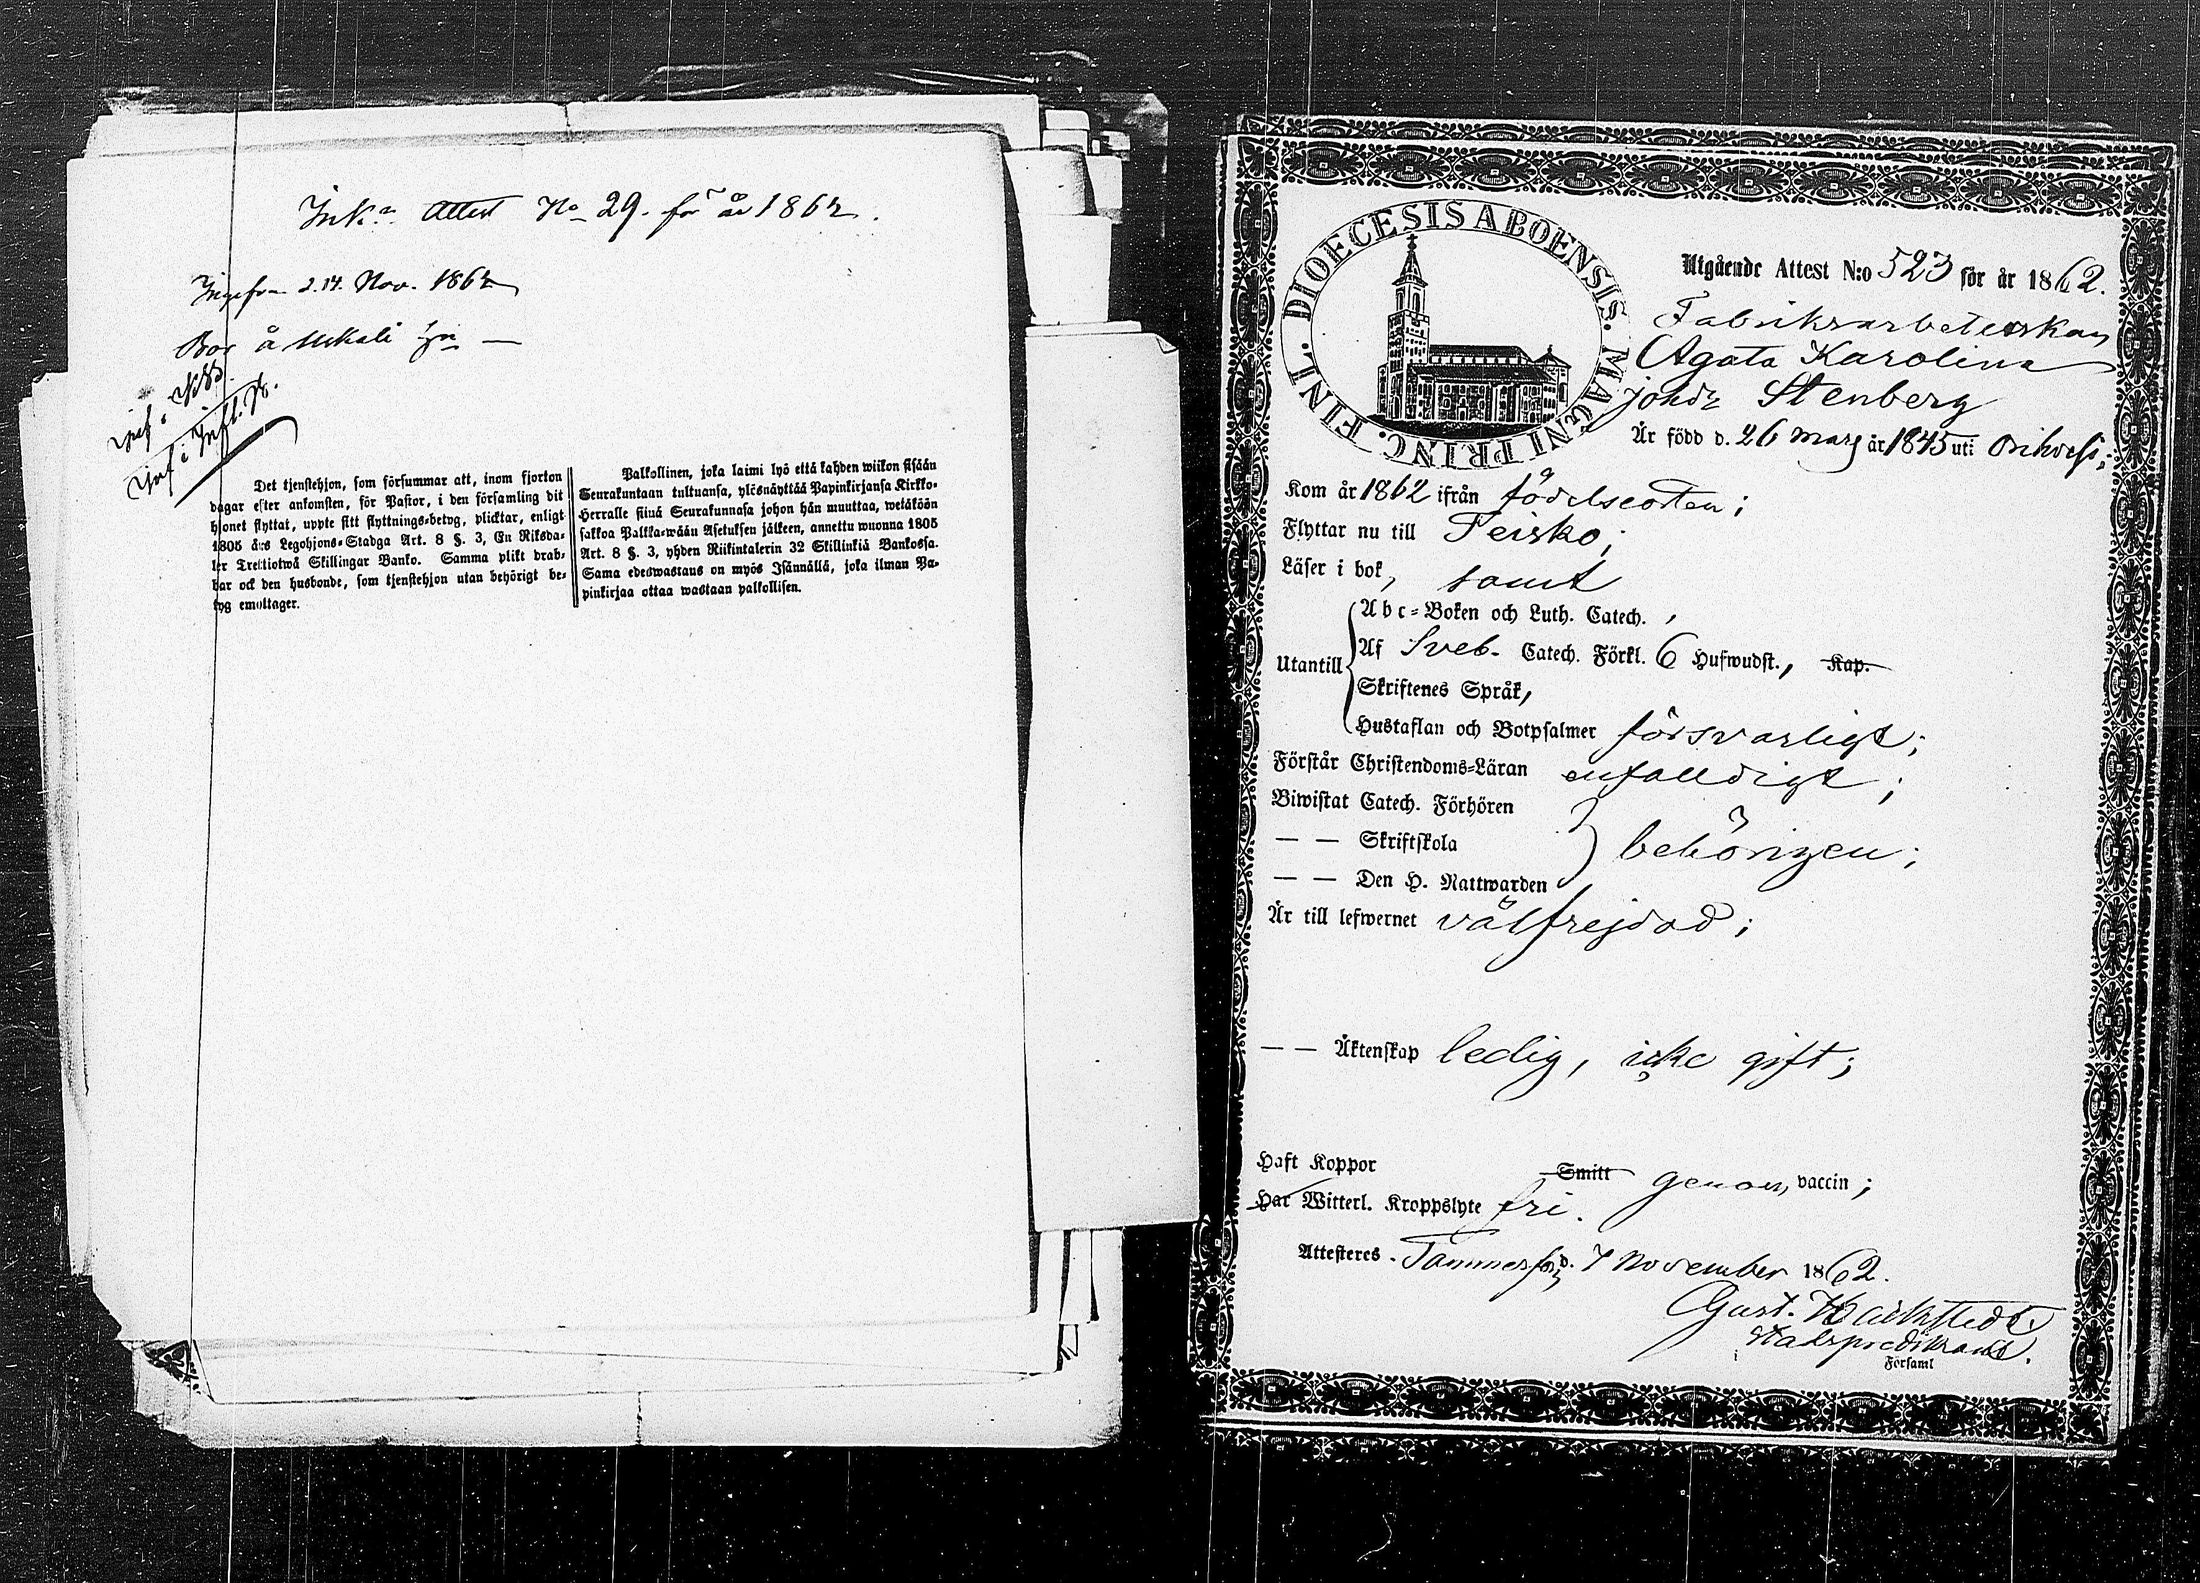 Ink:n Attest No 29. för år 1862.
d. 14. Nov. 1862
Bor å
Det tjenstehjon, som försummar att, inom fjorton
dagar efter ankomsten, för Pastor, i den församling dit
hjonet flyttat, uppte sitt flyttnings-betyg, plicktar, enligt
1805 års Legohjons-Stadga Art. 8 §. 3, En Riksda-
ler Trettiotwå Skillingar Banko. Samma plikt drab-
bar ock den husbonde, som tjenstehjon utan behörigt be-
tyg emottager.
Palkollinen, joka laimi lyö että kahden wiikon sisään
Seurakuntaan tultuansa, ylösnäyttää Papinkirjansa Kirkko-
Herralle siinä Seurakunnasa johon hän muuttaa, wetäköön
sakkoa Palkka-wään Asetuksen jälkeen, annettu wuonna 1805
Art. 8 §. 3, yhden Riikintalerin 32 Skillinkiä Bankossa.
Sama edeswastaus on myös Isännällä, joka ilman Pa-
pinkirjaa ottaa wastaan palkollisen.
DIOECESIS ABOENSIS. MAGNI PRINC. FINL.
Utgående Attest N:o 523 för år 1862.
Fabriksarbeterskan
Agata Karolina
Johdr Stenberg
Är född d. 26 Mars år 1845 uti Orihvesi;
Kom år 1862 ifrån födelseorten;
Flyttar nu till Teisko;
Läser i bok, samt
Utantill
Abc-Boken och Luth. Catech.,
Af Sveb. Catech. Förkl. 6 Hufwudst., Kap.
Skriftenes Språk,
Hustaflan och Botpsalmer försvarligt;
Förstår Christendoms-Läran enfalldigt;
Biwistat Catech. Förhören
— — Skriftskola behörigen;
— — Den H. Nattwarden
Är till lefwernet välfrejdad;
— — Äktenskap ledig, icke gift;
Haft Koppor Smitt genom vaccin;
Har Witterl. Kroppslyte fri.
Attesteres. Tammerfors d. 7 November 1862.
Gust.
Stadspredikant.
Församl